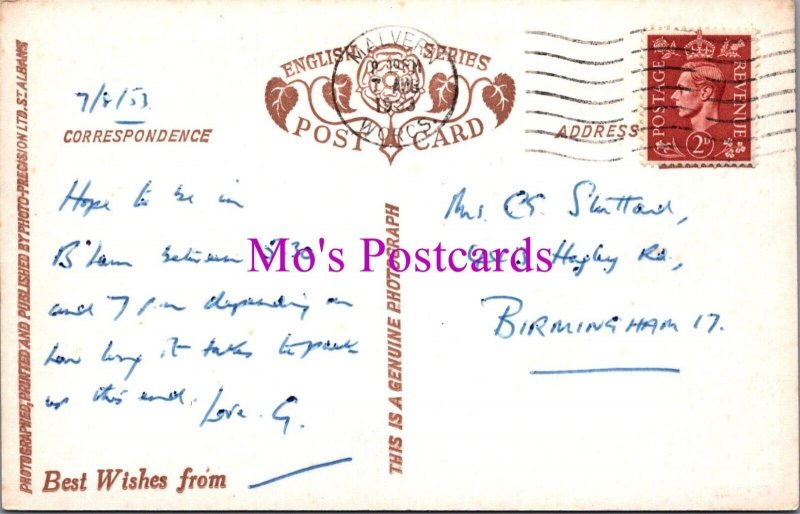 ENGLISH SERIES
POST CARD
MALVERN
7 AUG
1953
WORCS
POSTAGE REVENUE
2D
7/8/53
CORRESPONDENCE
ADDRESS
Hope to be in
B'ham between 5.30
and 7 pm depending on
how long it takes to pack
up this end. Love G.
Best Wishes from
Mrs. Stuttard,
Hagley Rd.,
BIRMINGHAM 17.
PHOTOGRAPHED, PRINTED AND PUBLISHED BY PHOTO-PRECISION LTD. ST. ALBANS
THIS IS A GENUINE PHOTOGRAPH
Mo's Postcards